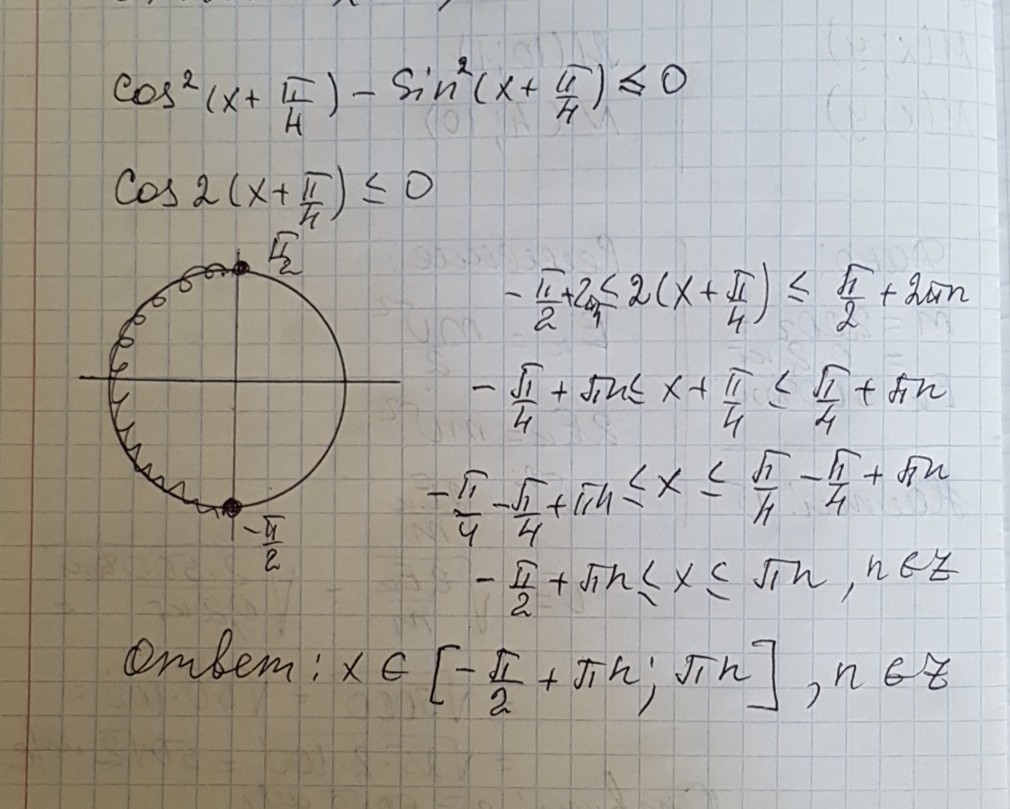 cos²(x + π/4) − sin²(x + π/4) ≤ 0
cos 2(x + π/4) ≤ 0
π/2
−π/2 + 2πn ≤ 2(x + π/4) ≤ π/2 + 2πn
−π/4 + πn ≤ x + π/4 ≤ π/4 + πn
−π/4 − π/4 + πn ≤ x ≤ π/4 − π/4 + πn
−π/2
−π/2 + πn ≤ x ≤ πn, n ∈ Z
Ответ: x ∈ [−π/2 + πn; πn], n ∈ Z